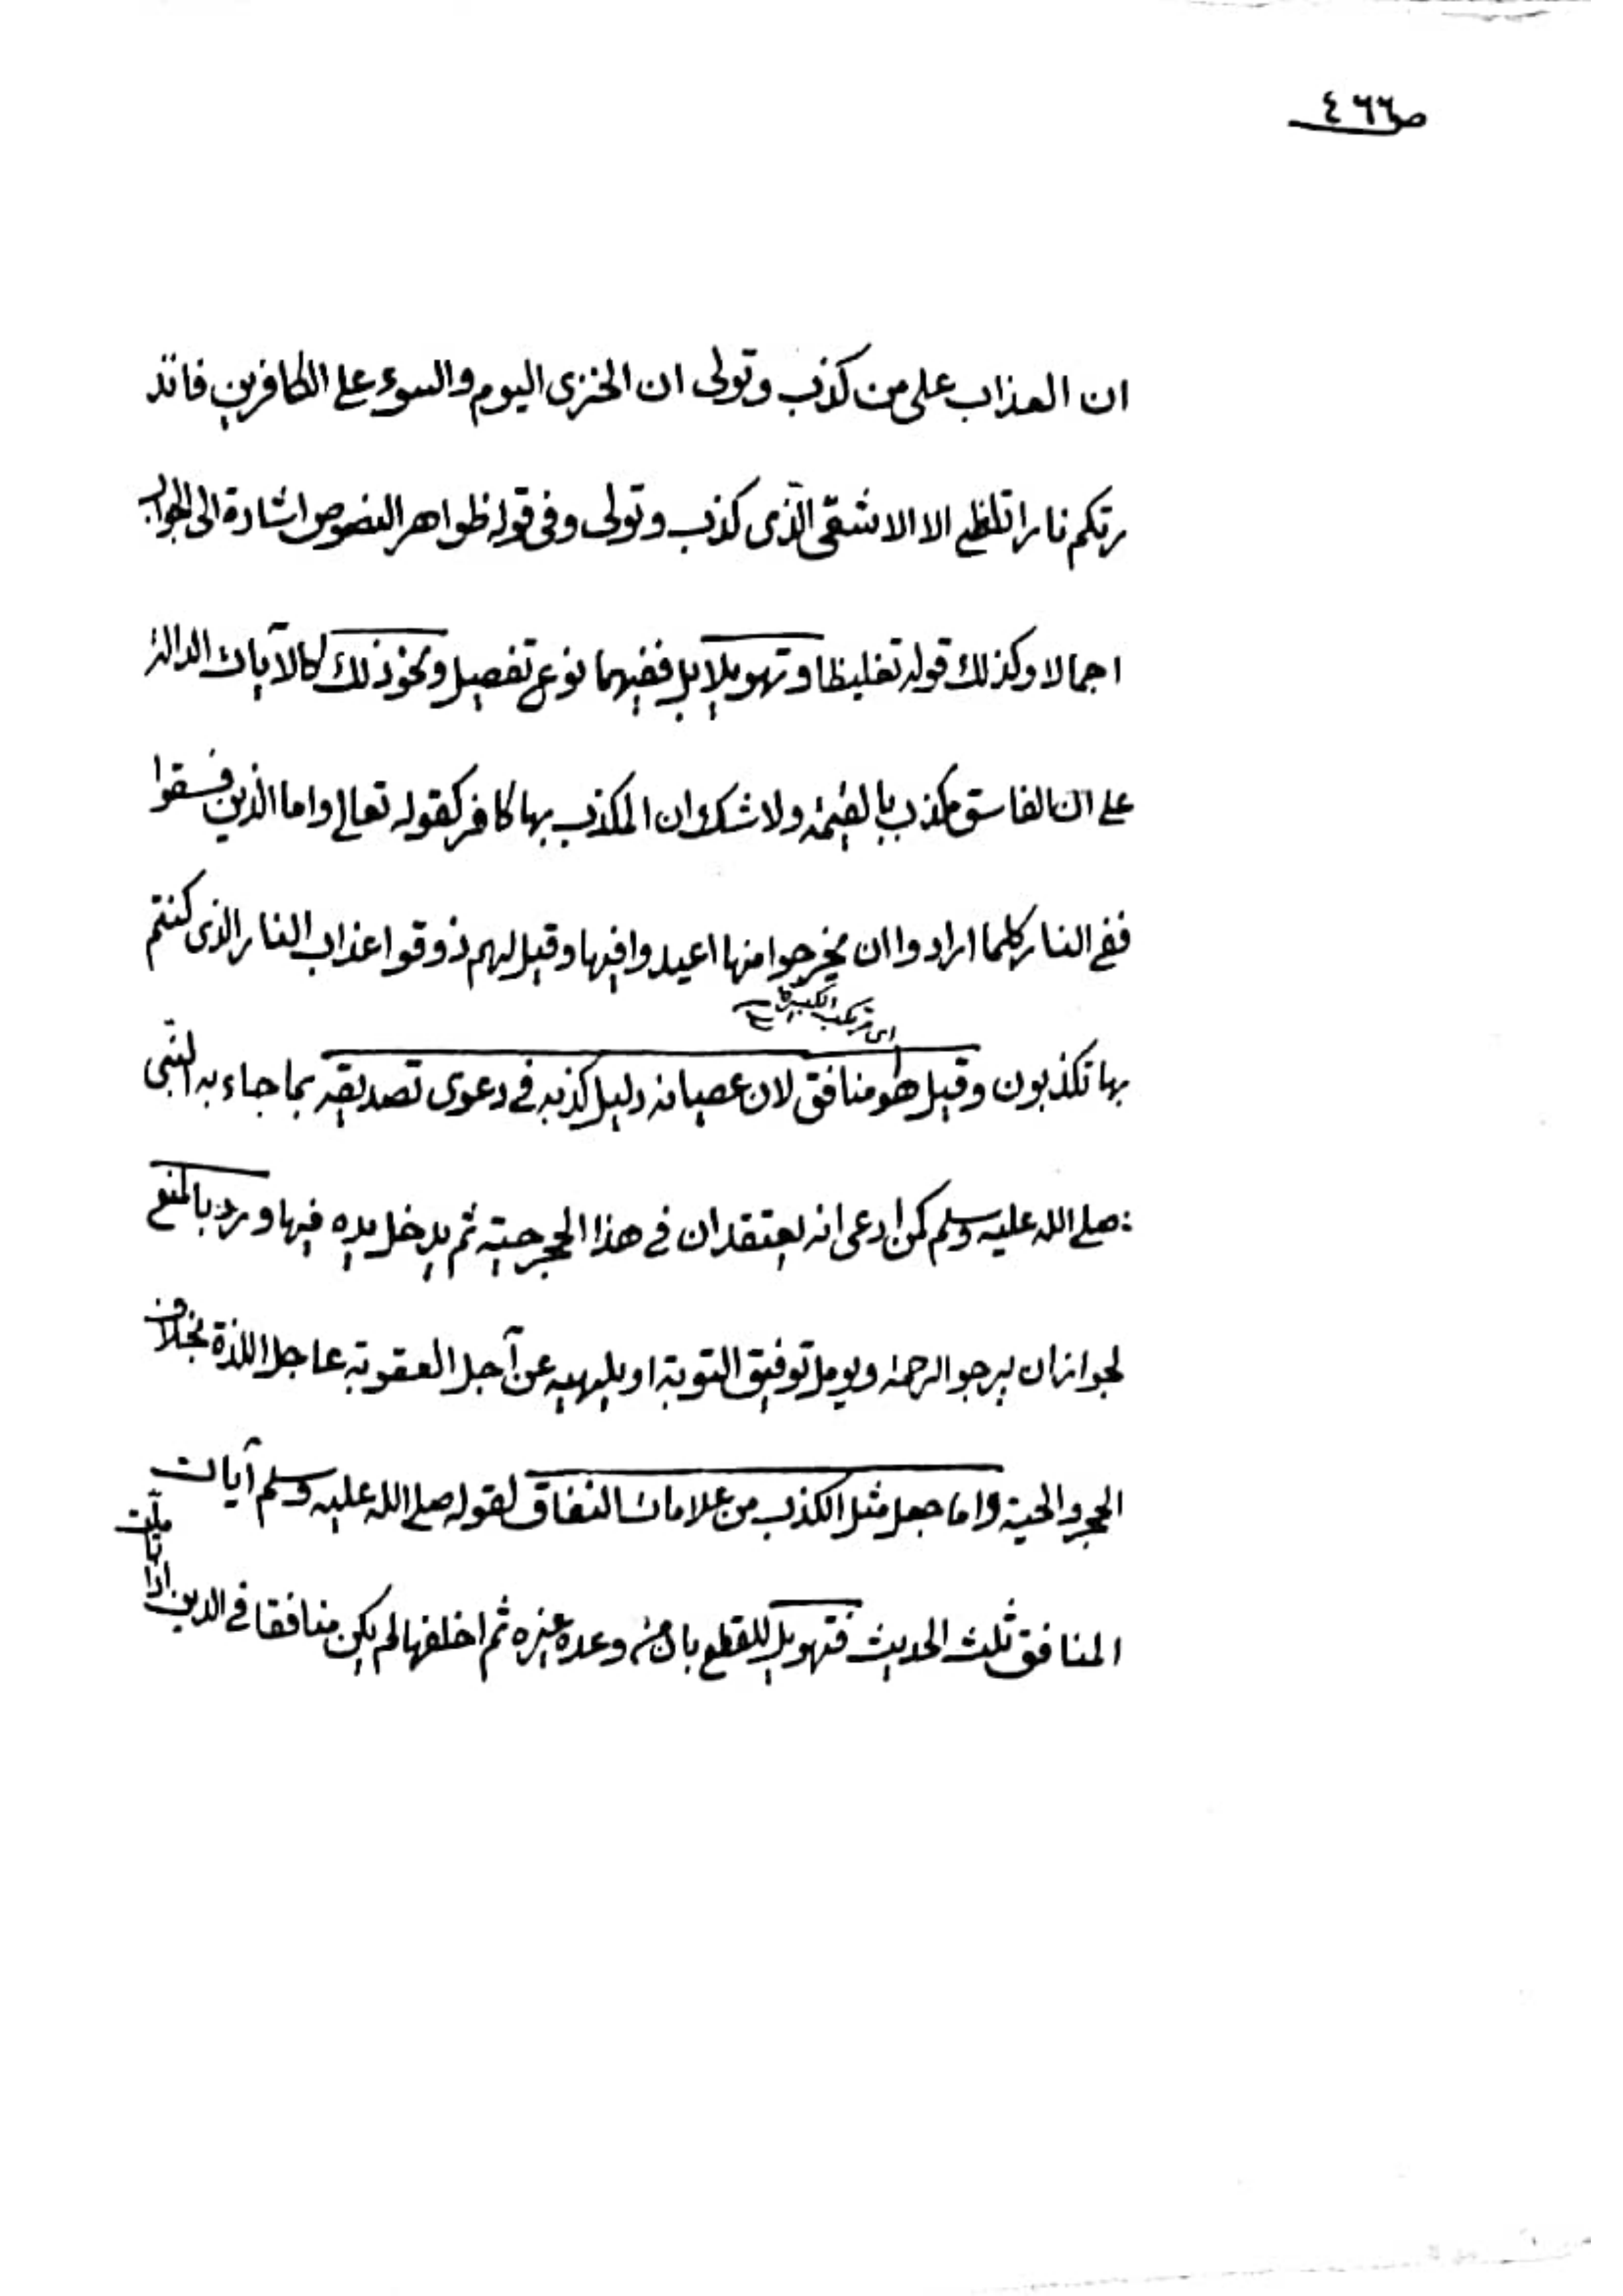 ص٤٦٦
ان العذاب على من كذب وتولى ان الخزى اليوم والسوء على الكافرين فانذ
رتكم نارا تلظى الا الاشقى الّذى كذب وتولى وفى قوله ظواهر النصوص اشارة الى الجواب
اجمالا وكذلك قوله تغليظا وتهويلا بل ففيهما نوع تفصيل ونحو ذلك كالآيات الدالة
على ان الفاسق مكذب بالقيمة ولا شك ان المكذب بها كافر كقوله تعالى واما الذين فسقوا
ففى النار كلما ارادوا ان يخرجوا منها اعيدوا فيها وقيل لهم ذوقوا عذاب النار الذى كنتم
اى مرتكب الكبيرة
بها تكذبون وقيل هو منافق لان عصيانه دليل كذبه فى دعوى تصديقه بما جاء به النّبى
صلى الله عليه وسلم كمن ادعى انه يعتقد ان فى هذا الحجر حيّة ثم يدخل يده فيها ورد بالمنع
لجواز ان يرجو الرحمة ويومل توفيق التوبة او يلهيه عن آجل العقوبة عاجل اللذة بخلاف
الحجر والحية واما جعل مثل الكذب من علامات النفاق لقوله صلى الله عليه وسلم آيات
المنافق ثلث الحديث فتهويل للقطع بان من وعده غيره ثم اخلفها لم يكن منافقا فى الدين اذا